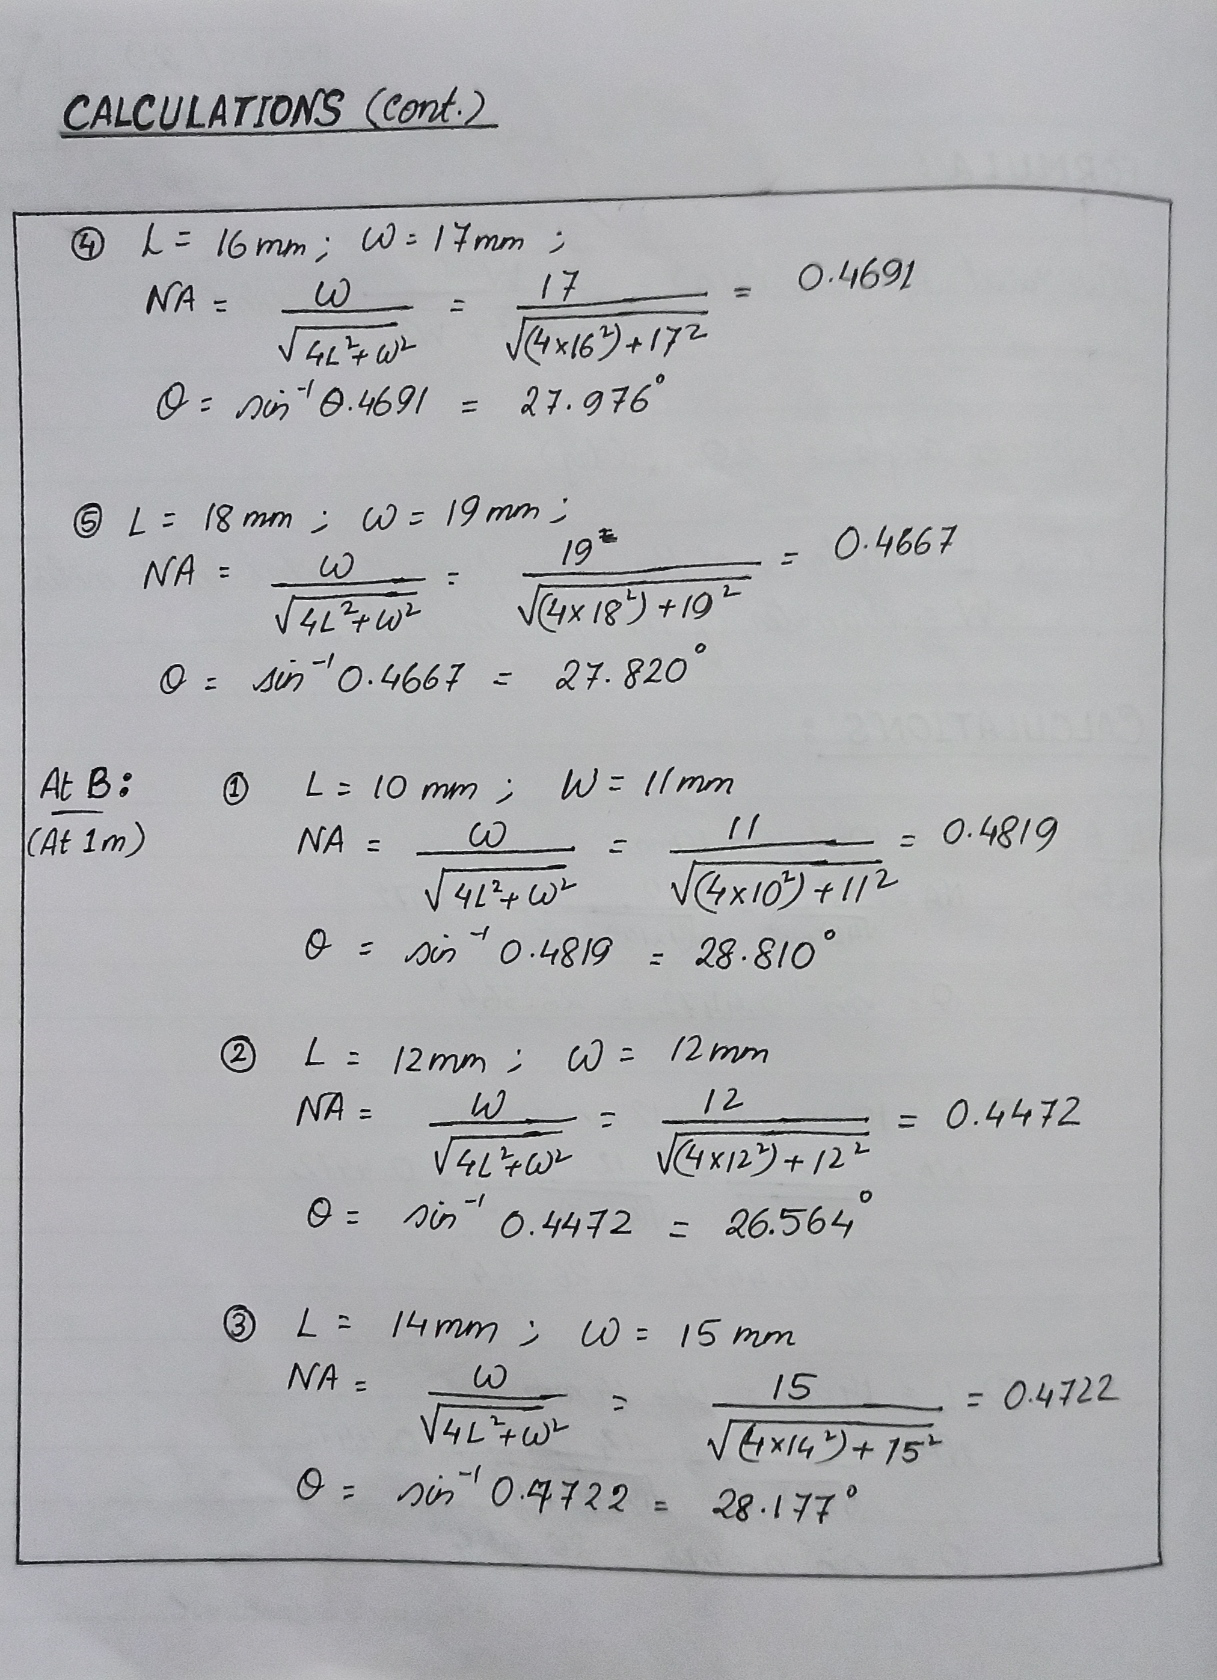 CALCULATIONS (Cont.)
④ L = 16 mm ; W = 17 mm ;
NA = W / √4L²+W² = 17 / √(4×16²)+17² = 0.4691
θ = sin⁻¹ 0.4691 = 27.976°
⑤ L = 18 mm ; W = 19 mm ;
NA = W / √4L²+W² = 19 / √(4×18²)+19² = 0.4667
θ = sin⁻¹ 0.4667 = 27.820°
At B: ① L = 10 mm ; W = 11 mm
(At 1m) NA = W / √4L²+W² = 11 / √(4×10²)+11² = 0.4819
θ = sin⁻¹ 0.4819 = 28.810°
② L = 12mm ; W = 12 mm
NA = W / √4L²+W² = 12 / √(4×12²)+12² = 0.4472
θ = sin⁻¹ 0.4472 = 26.564°
③ L = 14mm ; W = 15 mm
NA = W / √4L²+W² = 15 / √(4×14²)+15² = 0.4722
θ = sin⁻¹ 0.4722 = 28.177°